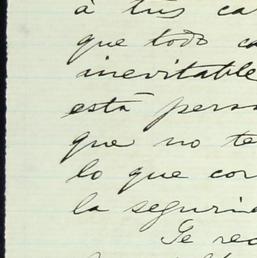 á tus ca
que todo ca
inevitable
está perso
que no te
lo que cor
la segurid
Te rec